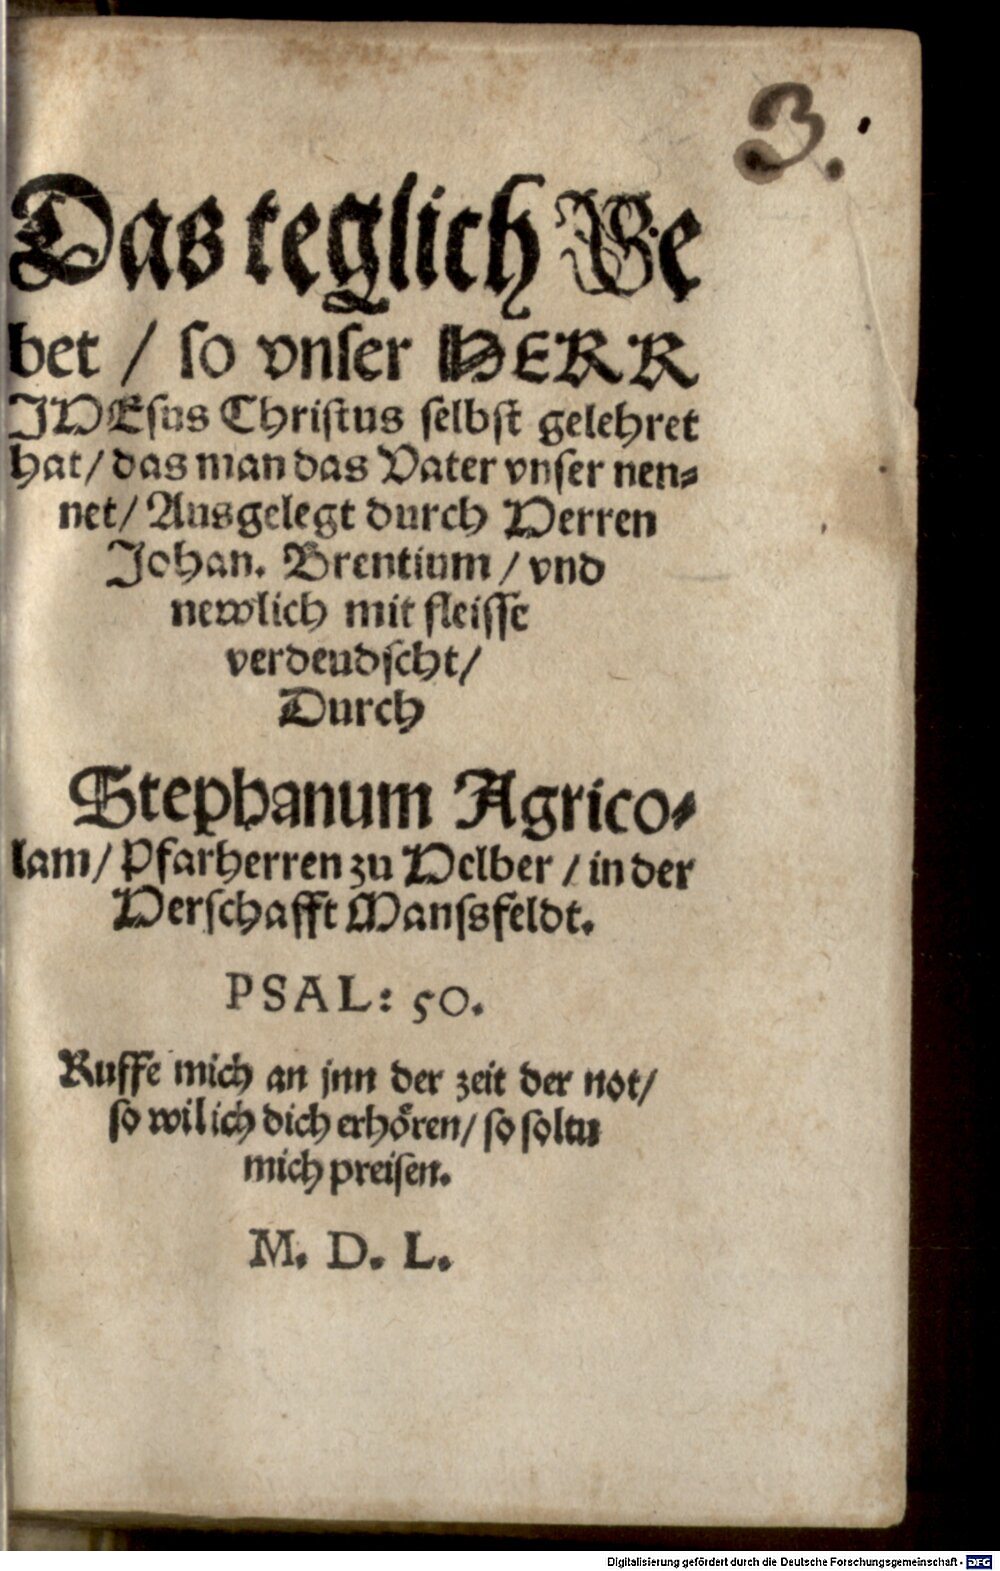 3.
Das teglich Ge
bet / so vnser HERR
JHEsus Christus selbst gelehret
hat / das man das Vater vnser nen⸗
net / Ausgelegt durch Herren
Johan. Brentium / vnd
newlich mit fleisse
verdeudscht /
Durch
Stephanum Agrico⸗
lam / Pfarherren zu Helber / in der
Herschafft Mansfeldt.
PSAL: 50.
Ruffe mich an jnn der zeit der not /
so wil ich dich erhören / so soltu
mich preisen.
M. D. L.
Digitalisierung gefördert durch die Deutsche Forschungsgemeinschaft - DFG